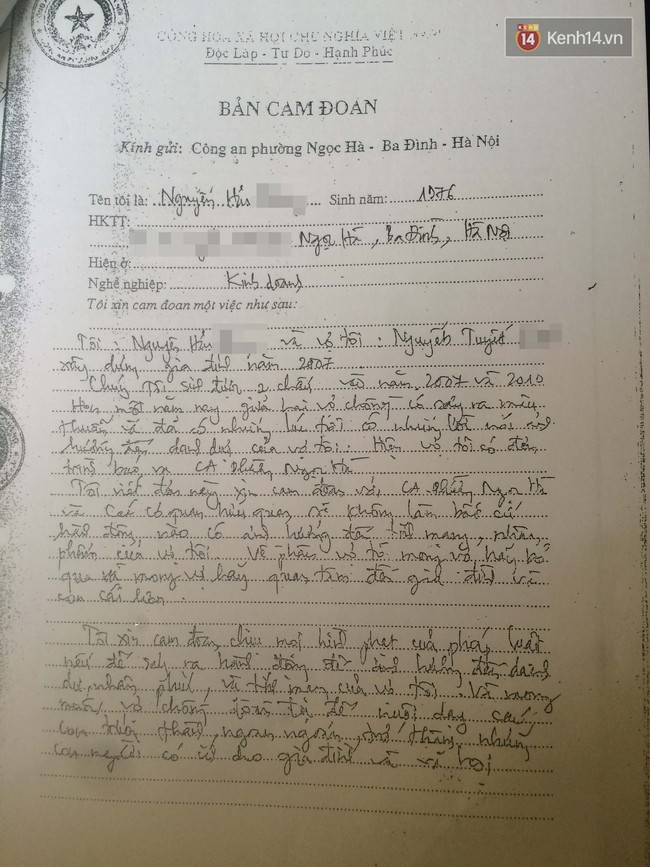 14 Kenh14.vn
CỘNG HÒA XÃ HỘI CHỦ NGHĨA VIỆT NAM
Độc Lập - Tự Do - Hạnh Phúc
BẢN CAM ĐOAN
Kính gửi: Công an phường Ngọc Hà - Ba Đình - Hà Nội
Tên tôi là: Nguyễn Hữu Sinh năm: 1976
HKTT:
Ngọc Hà, Ba Đình, Hà Nội
Hiện ở:
Nghề nghiệp: Kinh doanh
Tôi xin cam đoan một việc như sau:
Tôi: Nguyễn Hữu và vợ tôi: Nguyễn Tuyết
xây dựng gia đình năm 2007
Chúng tôi sinh được 2 cháu vào năm 2007 và 2010
Hơn một năm nay giữa hai vợ chồng có xảy ra mâu
thuẫn và đã có nhiều lúc tôi có nhiều lời nói ảnh
hưởng đến danh dự của vợ tôi. Hiện vợ tôi có đơn
trình báo ra CA phường Ngọc Hà
Tôi viết đơn này xin cam đoan với CA phường Ngọc Hà
và các cơ quan hữu quan, sẽ không làm bất cứ
hành động nào có ảnh hưởng đến tính mạng, nhân
phẩm của vợ tôi. Về phần vợ tôi mong vợ hãy bỏ
qua và mong vợ hãy quan tâm đến gia đình và
con cái hơn.
Tôi xin cam đoan chịu mọi hình phạt của pháp luật
nếu để xảy ra hành động để ảnh hưởng đến danh
dự, nhân phẩm, và tính mạng của vợ tôi. Và mong
muốn vợ chồng để nuôi dạy các
con thân, ngoan ngoãn, trở thành những
con người có ích cho gia đình và xã hội